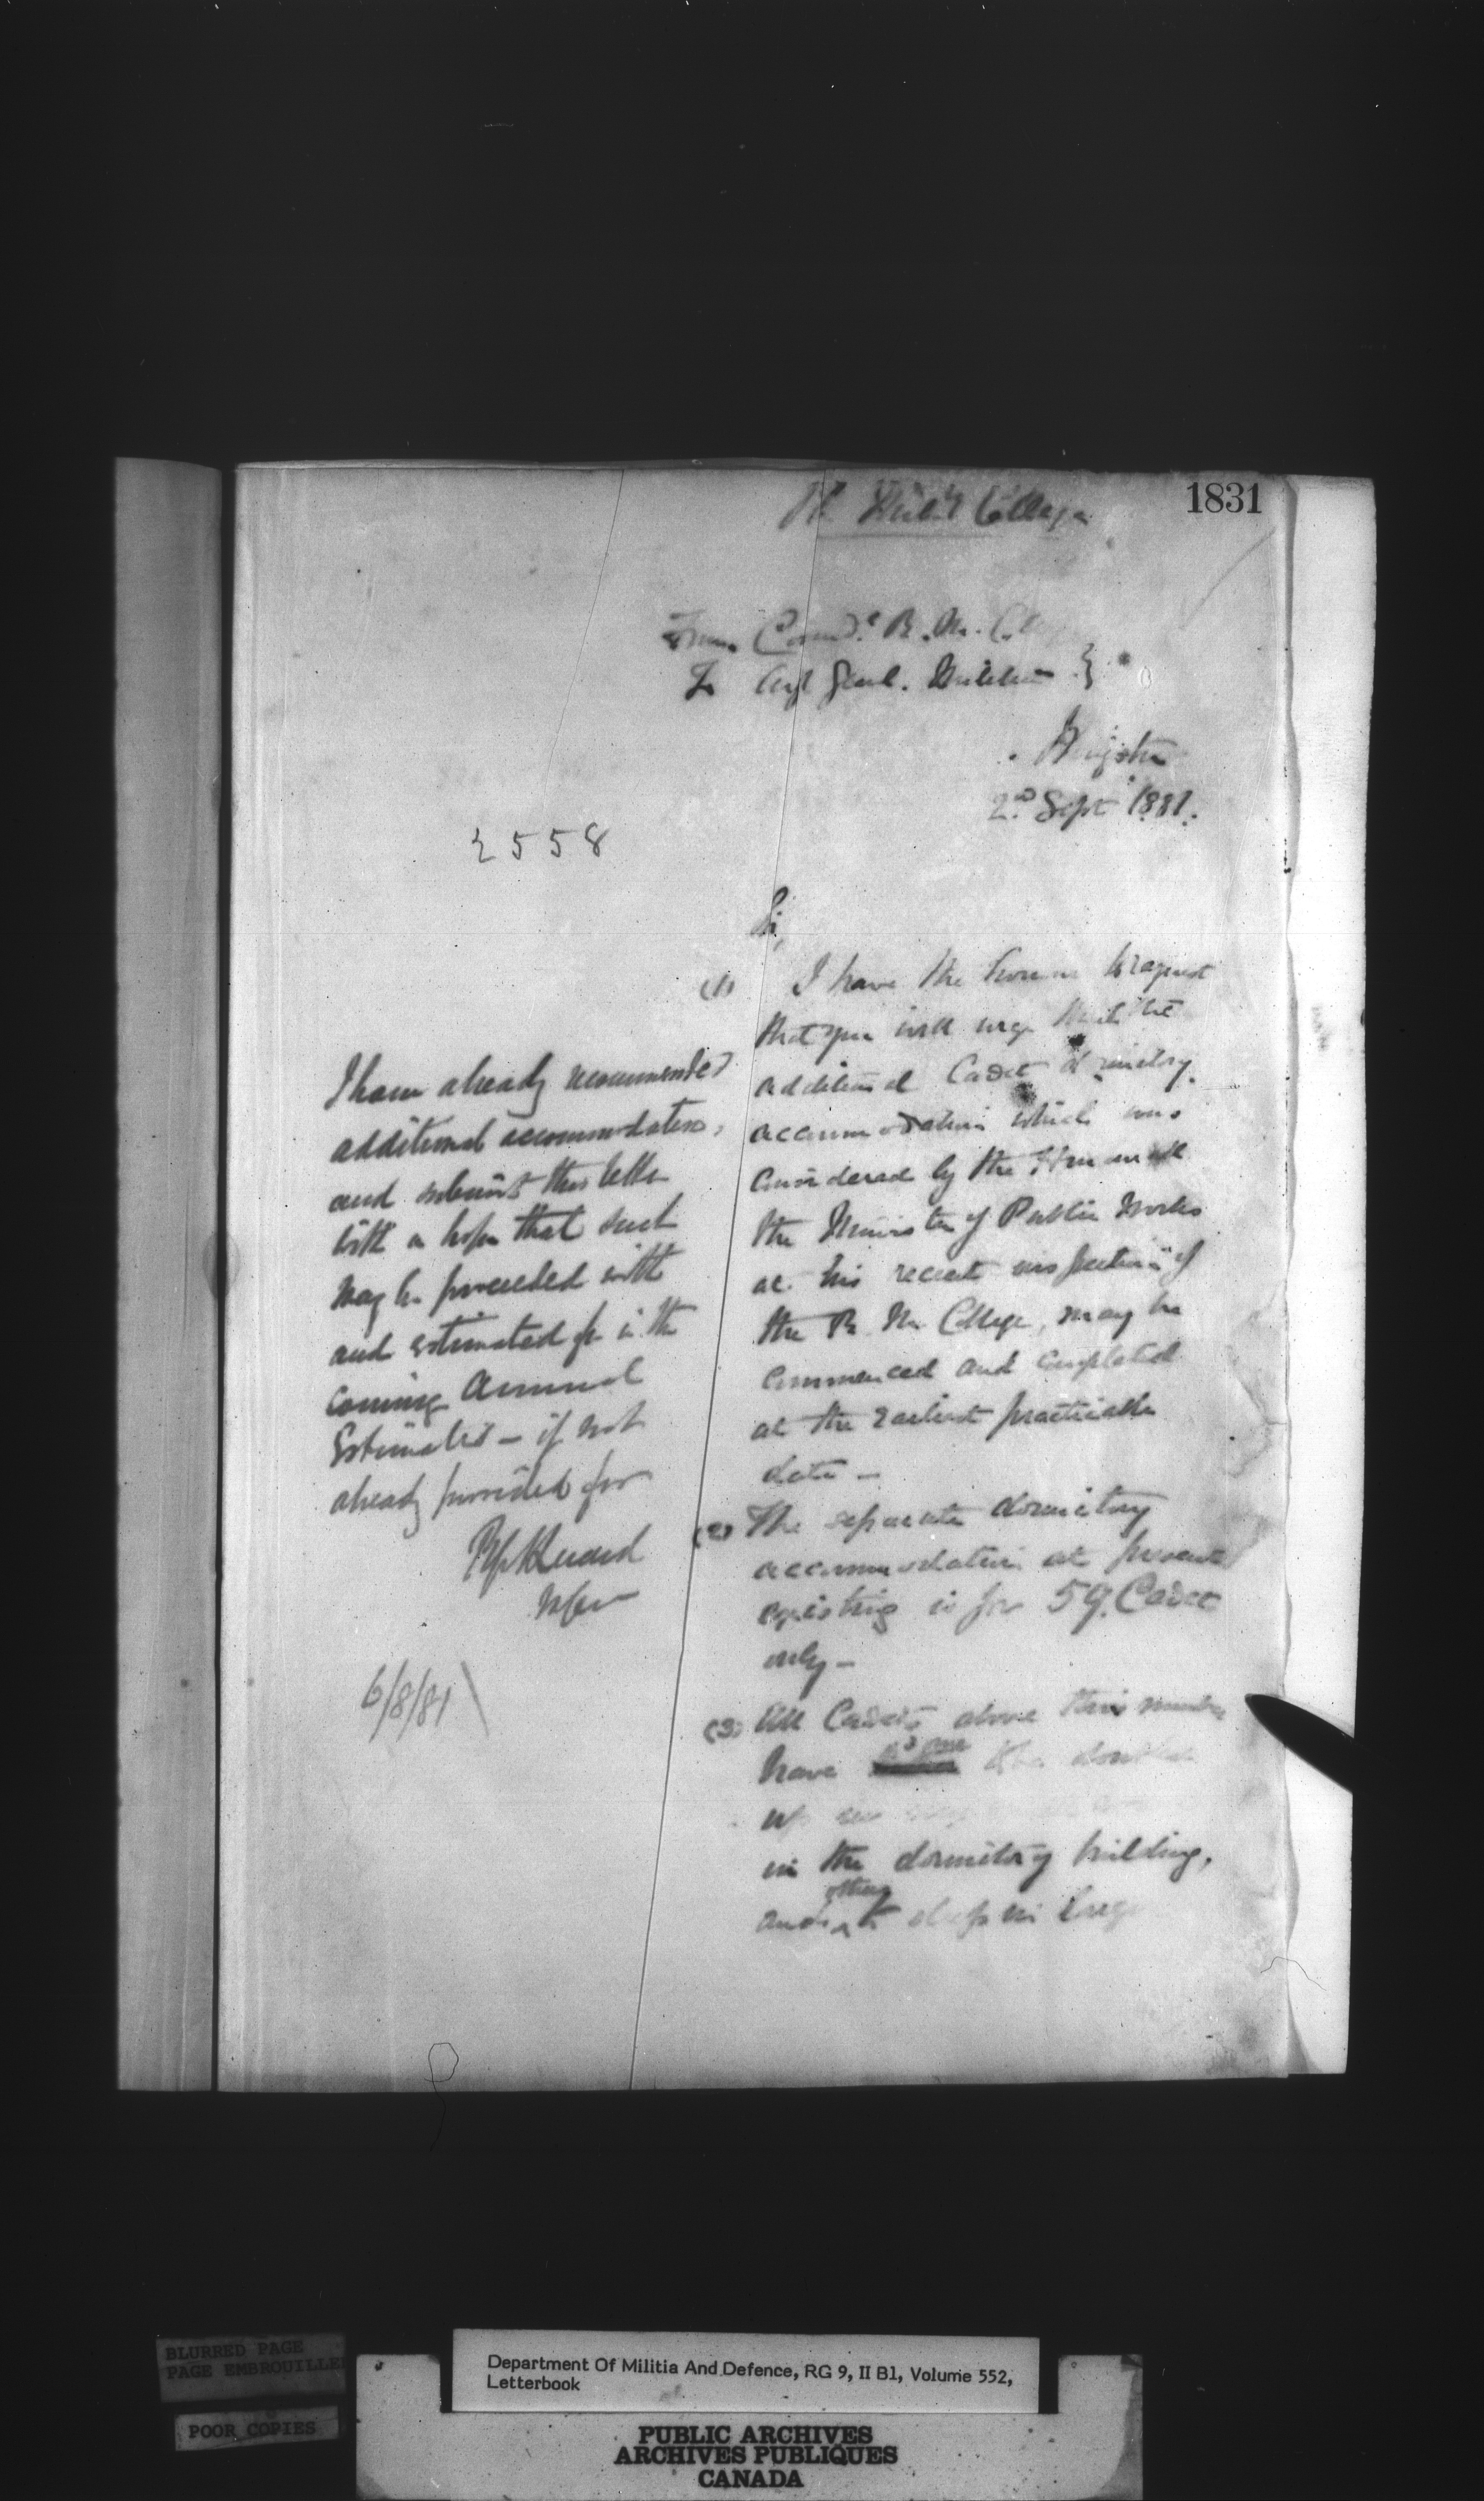 1831
Rl. Milit'y College
From Comd.t R. M. Coll
To Adj Genl. Militia }
Kingston
2nd Sept 1881.
2558
Sir,
(1) I have the honour to request
that you will urge that the
additional Cadet dormitory
accommodation which was
considered by the Honourable
the Minister of Public Works
at his recent inspection of
the R. M. College, may be
commenced and completed
at the earliest practicable
date —
(2) The separate dormitory
accommodation at present
existing is for 59 Cadets
only —
(3) All Cadets above this number
have to be doubled
up
in the dormitory building,
and others to sleep in large
I have already recommended
additional accommodation,
and submit this letter
with a hope that such
may be proceeded with
and estimated for in the
coming Annual
Estimates — if not
already provided for
6/8/81
BLURRED PAGE
PAGE EMBROUILLEE
POOR COPIES
Department Of Militia And Defence, RG 9, II B1, Volume 552,
Letterbook
PUBLIC ARCHIVES
ARCHIVES PUBLIQUES
CANADA